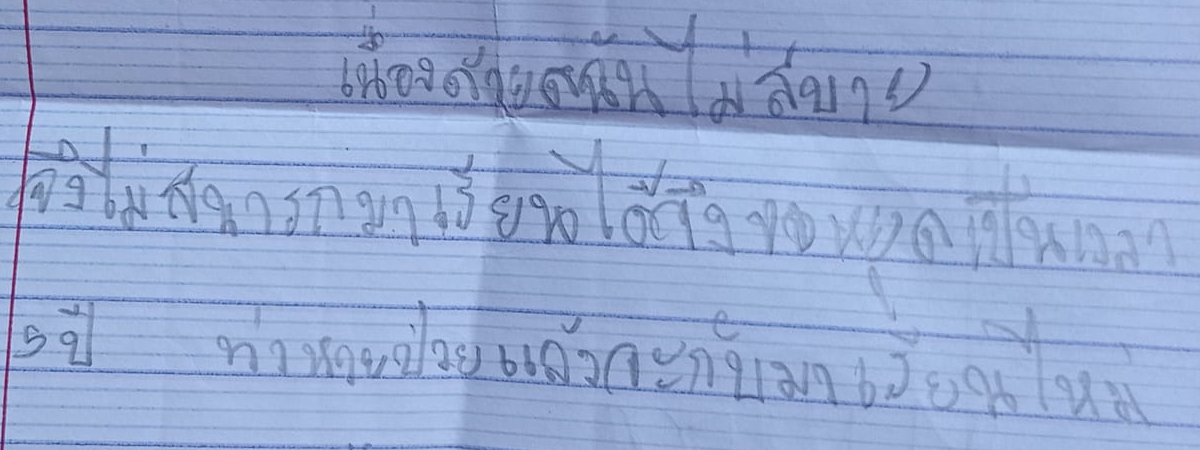 เนื่องด้วยดิฉันไม่สบาย
จึงไม่สามารถมาเรียนได้จึงขอหยุดเป็นเวลา
5 ปี ถ้าหายป่วยแล้วจะกลับมาเรียนใหม่